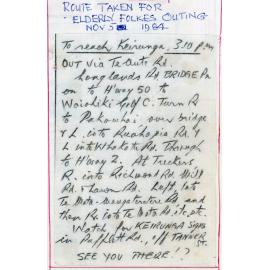 ROUTE TAKEN FOR
ELDERLY FOLKES OUTING
NOV 5 1984
To reach Keirunga, 3.10 pm
OUT via Te Aute Rd.
Longlands Rd, BRIDGE Pa
on to H'way 50 to
Waiohiki Golf C. Turn R
to Pakowhai over bridge
& L. into Ruahapia Rd, &
L into Whakatu Rd. Through
to H'way 2. At Truckers
R. into Richmond Rd. Mill
Rd. & Lawn Rd. Left, into
Te Mata - Mangateretere Rd and
then R. into Te Mata Rd, etc, etc.
Watch for KEIRUNGA Signs
in Rd, off TANNER
ST.
SEE YOU THERE!?